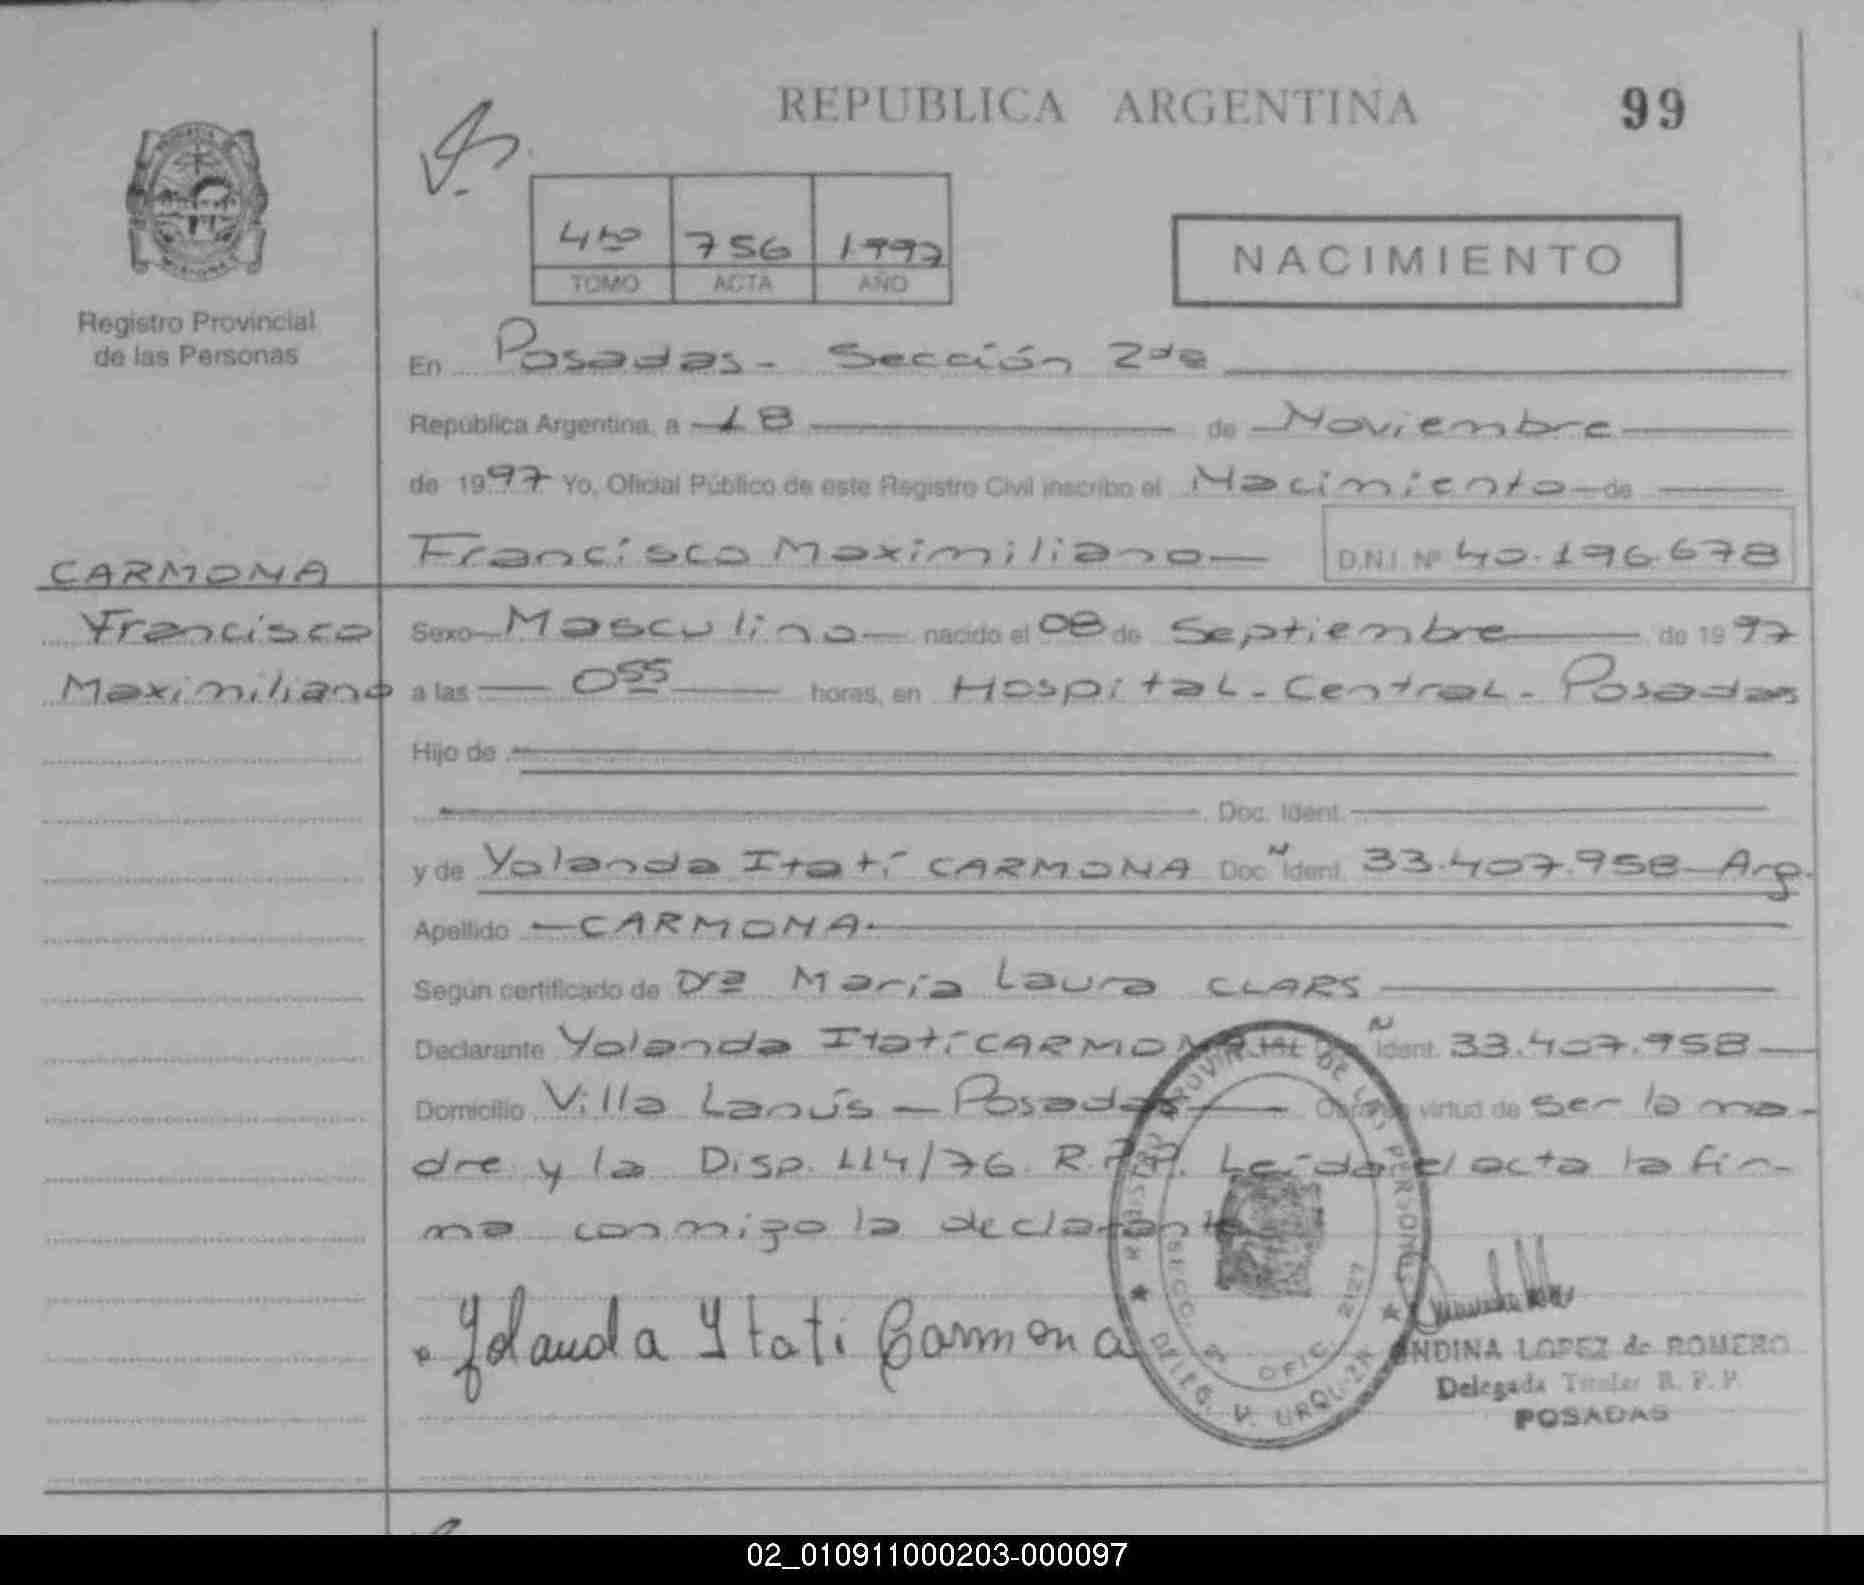 REPUBLICA ARGENTINA
99
4to 756 1997
TOMO ACTA AÑO
NACIMIENTO
Registro Provincial
de las Personas
CARMONA
Francisco
Maximiliano
En Posadas - Sección 2da
República Argentina, a 18 de Noviembre
de 1997 Yo, Oficial Público de este Registro Civil inscribo el Nacimiento de
Francisco Maximiliano D.N.I. Nº 40.196.678
Sexo Masculino nacido el 08 de Septiembre de 1997
a las 0 55 horas, en Hospital - Central - Posadas
Hijo de
Doc. Ident.
y de Yolanda Itatí CARMONA Doc. Ident. 33.407.958 - Arg.
Apellido CARMONA.
Según certificado de Drª María Laura CLARS
Declarante Yolanda Itatí CARMONA Ident. 33.407.958
Domicilio Villa Lanús - Posadas virtud de ser la ma-
dre y la Disp. 114/76 R.P.P. Leída el acta la fir-
ma conmigo la declarante
Yolanda Itati Carmona
REGISTRO PROVINCIAL DE LAS PERSONAS
SECC. 2ª OFIC. 2127
DELEG. V. URQUIZA
ONDINA LOPEZ de ROMERO
Delegada Titular R. P. P.
POSADAS
02_010911000203-000097